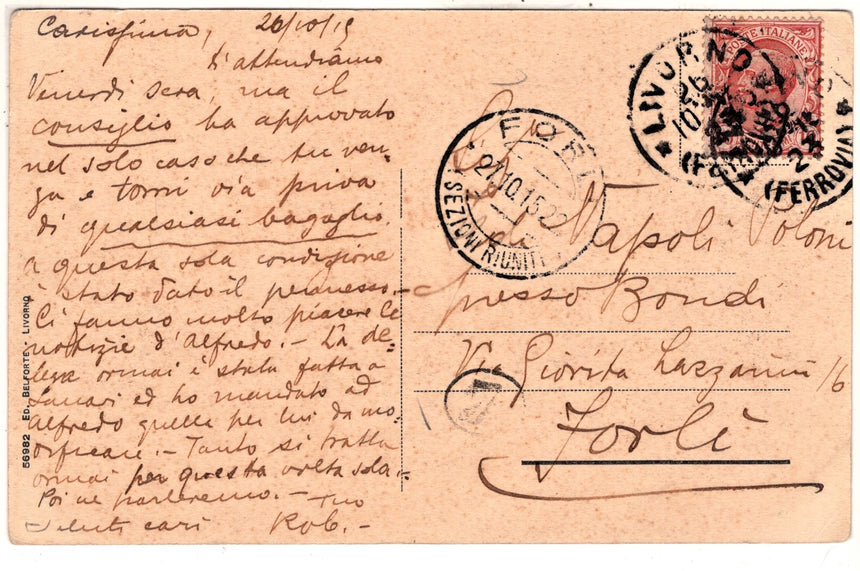 Carissima, 26/10/15
t'attendiamo
Venerdì sera, ma il
consiglio ha approvato
nel solo caso che tu ven-
ga e torni via priva
di qualsiasi bagaglio.
a questa sola condizione
è stato dato il permesso.-
Ci fanno molto piacere le
notizie d'Alfredo.- La de-
lega ormai è stata fatta a
ed ho mandato ad
Alfredo quella per lui da mo-
dificare.- Tanto si tratta
ormai per questa volta sola.-
Poi ne parleremo.- Tuo
Saluti cari Rob.-
56982 ED. BELFORTE - LIVORNO
POSTE ITALIANE
LIVORNO
26
10
(FERROVIA)
FORLI
27.10.15 22
(SEZIONI RIUNITE
Napoli Poloni
presso Bondi
Via Giorita Lazzarini 16
Forlì